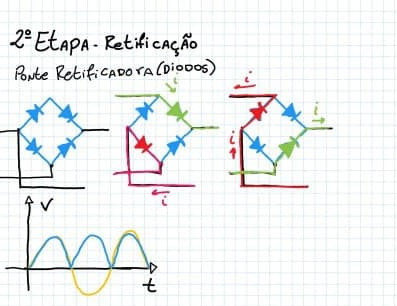 2º EtAPA - Retificação
Ponte Retificadora (Diodos)
i
i
i
i
i
V
t